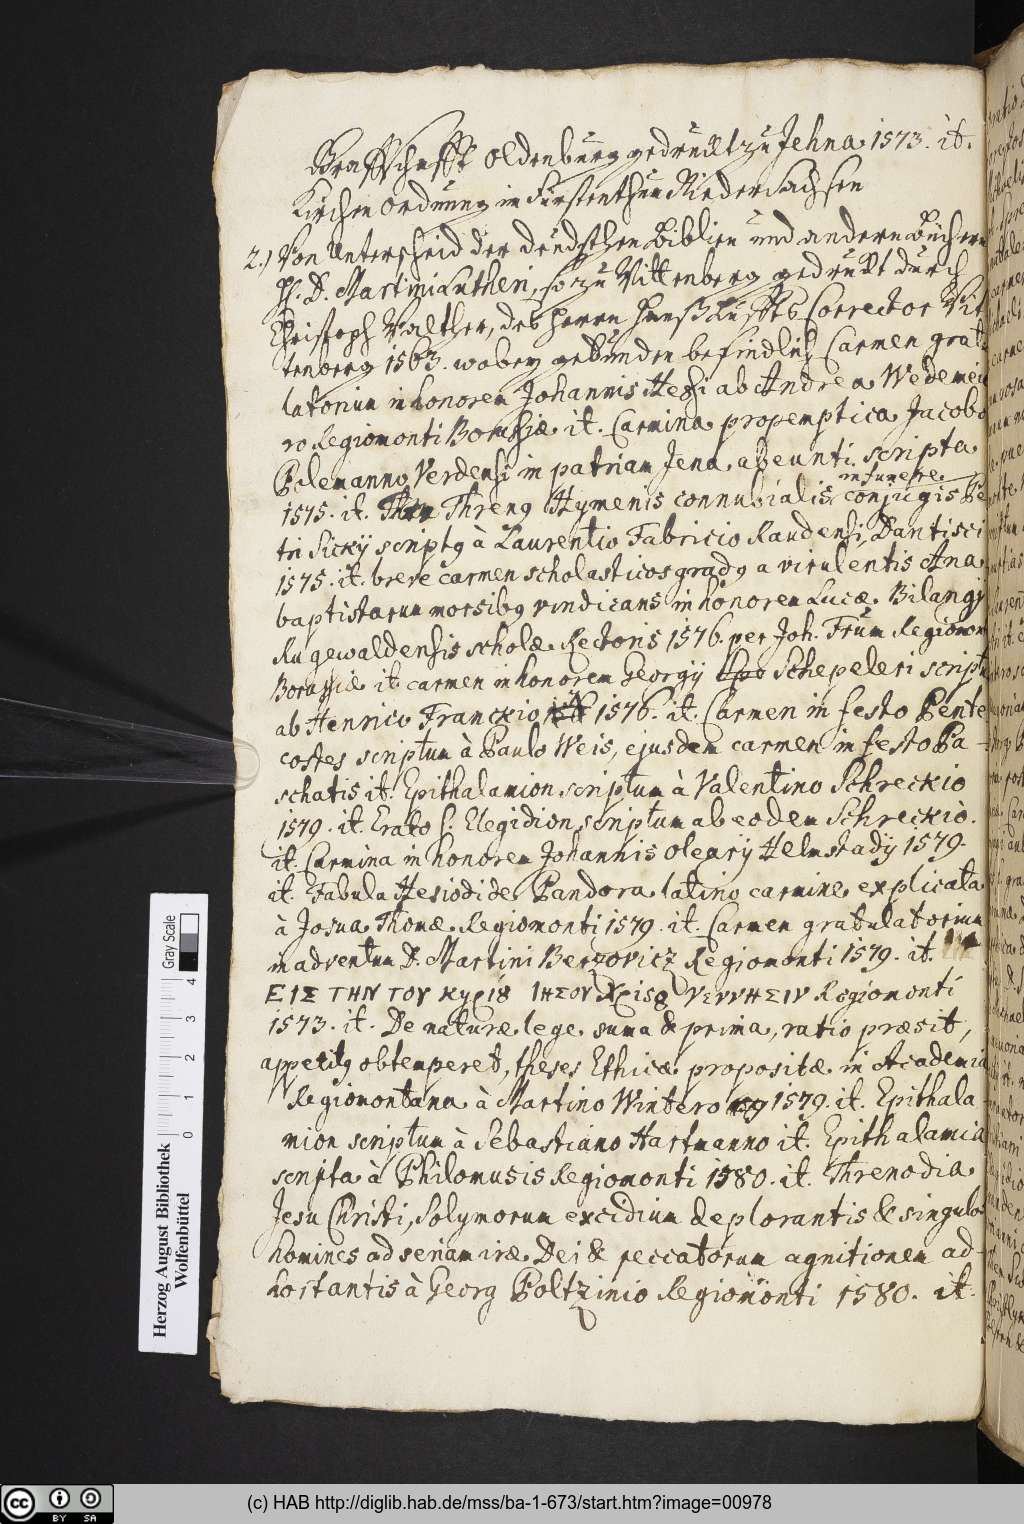 Graffschafft Oldenburg gedruckt zu Jehna 1573. it.
Kirchen Ordnung im Fürstenthum Nieder Sachsen
2.) Von Unterscheid der deudschen Biblien und andern Büchern
H. D. Martini Lutheri, so zu Wittenberg gedruckt durch
Christoph Walther, des Herrn Hanß Luffts Corrector Wit
tenberg 1563. wobey gebunden befindlich Carmen gratu
latorium in honorem Johannis Hessi ab Andrea Wedemeie
ro Regiomonti Borussiæ it. Carmina propemptica Jacobo
Polemanno Verdensi in patriam Jena abeunti scripta
in funere
1575. it. Threng Hymenis connubialis conjugis Pe
tri Sickÿ scriptq à Laurentio Fabricio Raudensi, Dantisci
1575. it. breve carmen scholasticos gradq a virulentis Ana
baptistarum morsibq vindicans in honorem Lucæ Bilangÿ
Rugewaldensis scholæ Rectoris 1576. per Joh. Frum Regiomon
Borussiæ it. carmen in honorem Georgÿ Schepeleri script
ab Henrico Franckio 1576. it. Carmen in festo Pente
costes scriptum à Paulo Weis, ejusdem carmen in festo Pa-
schatis it. Epithalamion scriptum à Valentino Schreckio
1579. it. Erato s. Elegidion scriptum ab eodem Schreckio.
it. Carmina in honorem Johannis Olearÿ Helmstadÿ 1579.
it. Fabula Hesiodi de Pandora latino carmine explicata
à Josua Thomæ Regiomonti 1579. it. Carmen gratulatorium
in adventum D. Martini Berzovicz Regiomonti 1579. it.
ΕΙΣ ΤΗΝ ΤΟΥ Κυρίȣ ΙΗΣΟΥ Χρισȣ ΓΕΝΝΗΣΙΝ Regiomonti
1573. it. De naturæ lege suma & prima, ratio præsit,
appetitq obtemperet, theses Ethicæ propositæ in Academia
Regiomontana à Martino Wintero 1579. it. Epithala-
mion scriptum à Sebastiano Hartmanno it. Epithalamia
scripta à Philomusis Regiomonti 1580. it. Threnodia
Jesu Christi, Solymorum excidium deplorantis & singulos
homines ad seriam iræ Dei & peccatorum agnitionem ad-
hortantis à Georg Poltzinio Regiomonti 1580. it.
Herzog August Bibliothek
Wolfenbüttel
Gray Scale
0 1 2 3 4
BY SA
(c) HAB http://diglib.hab.de/mss/ba-1-673/start.htm?image=00978